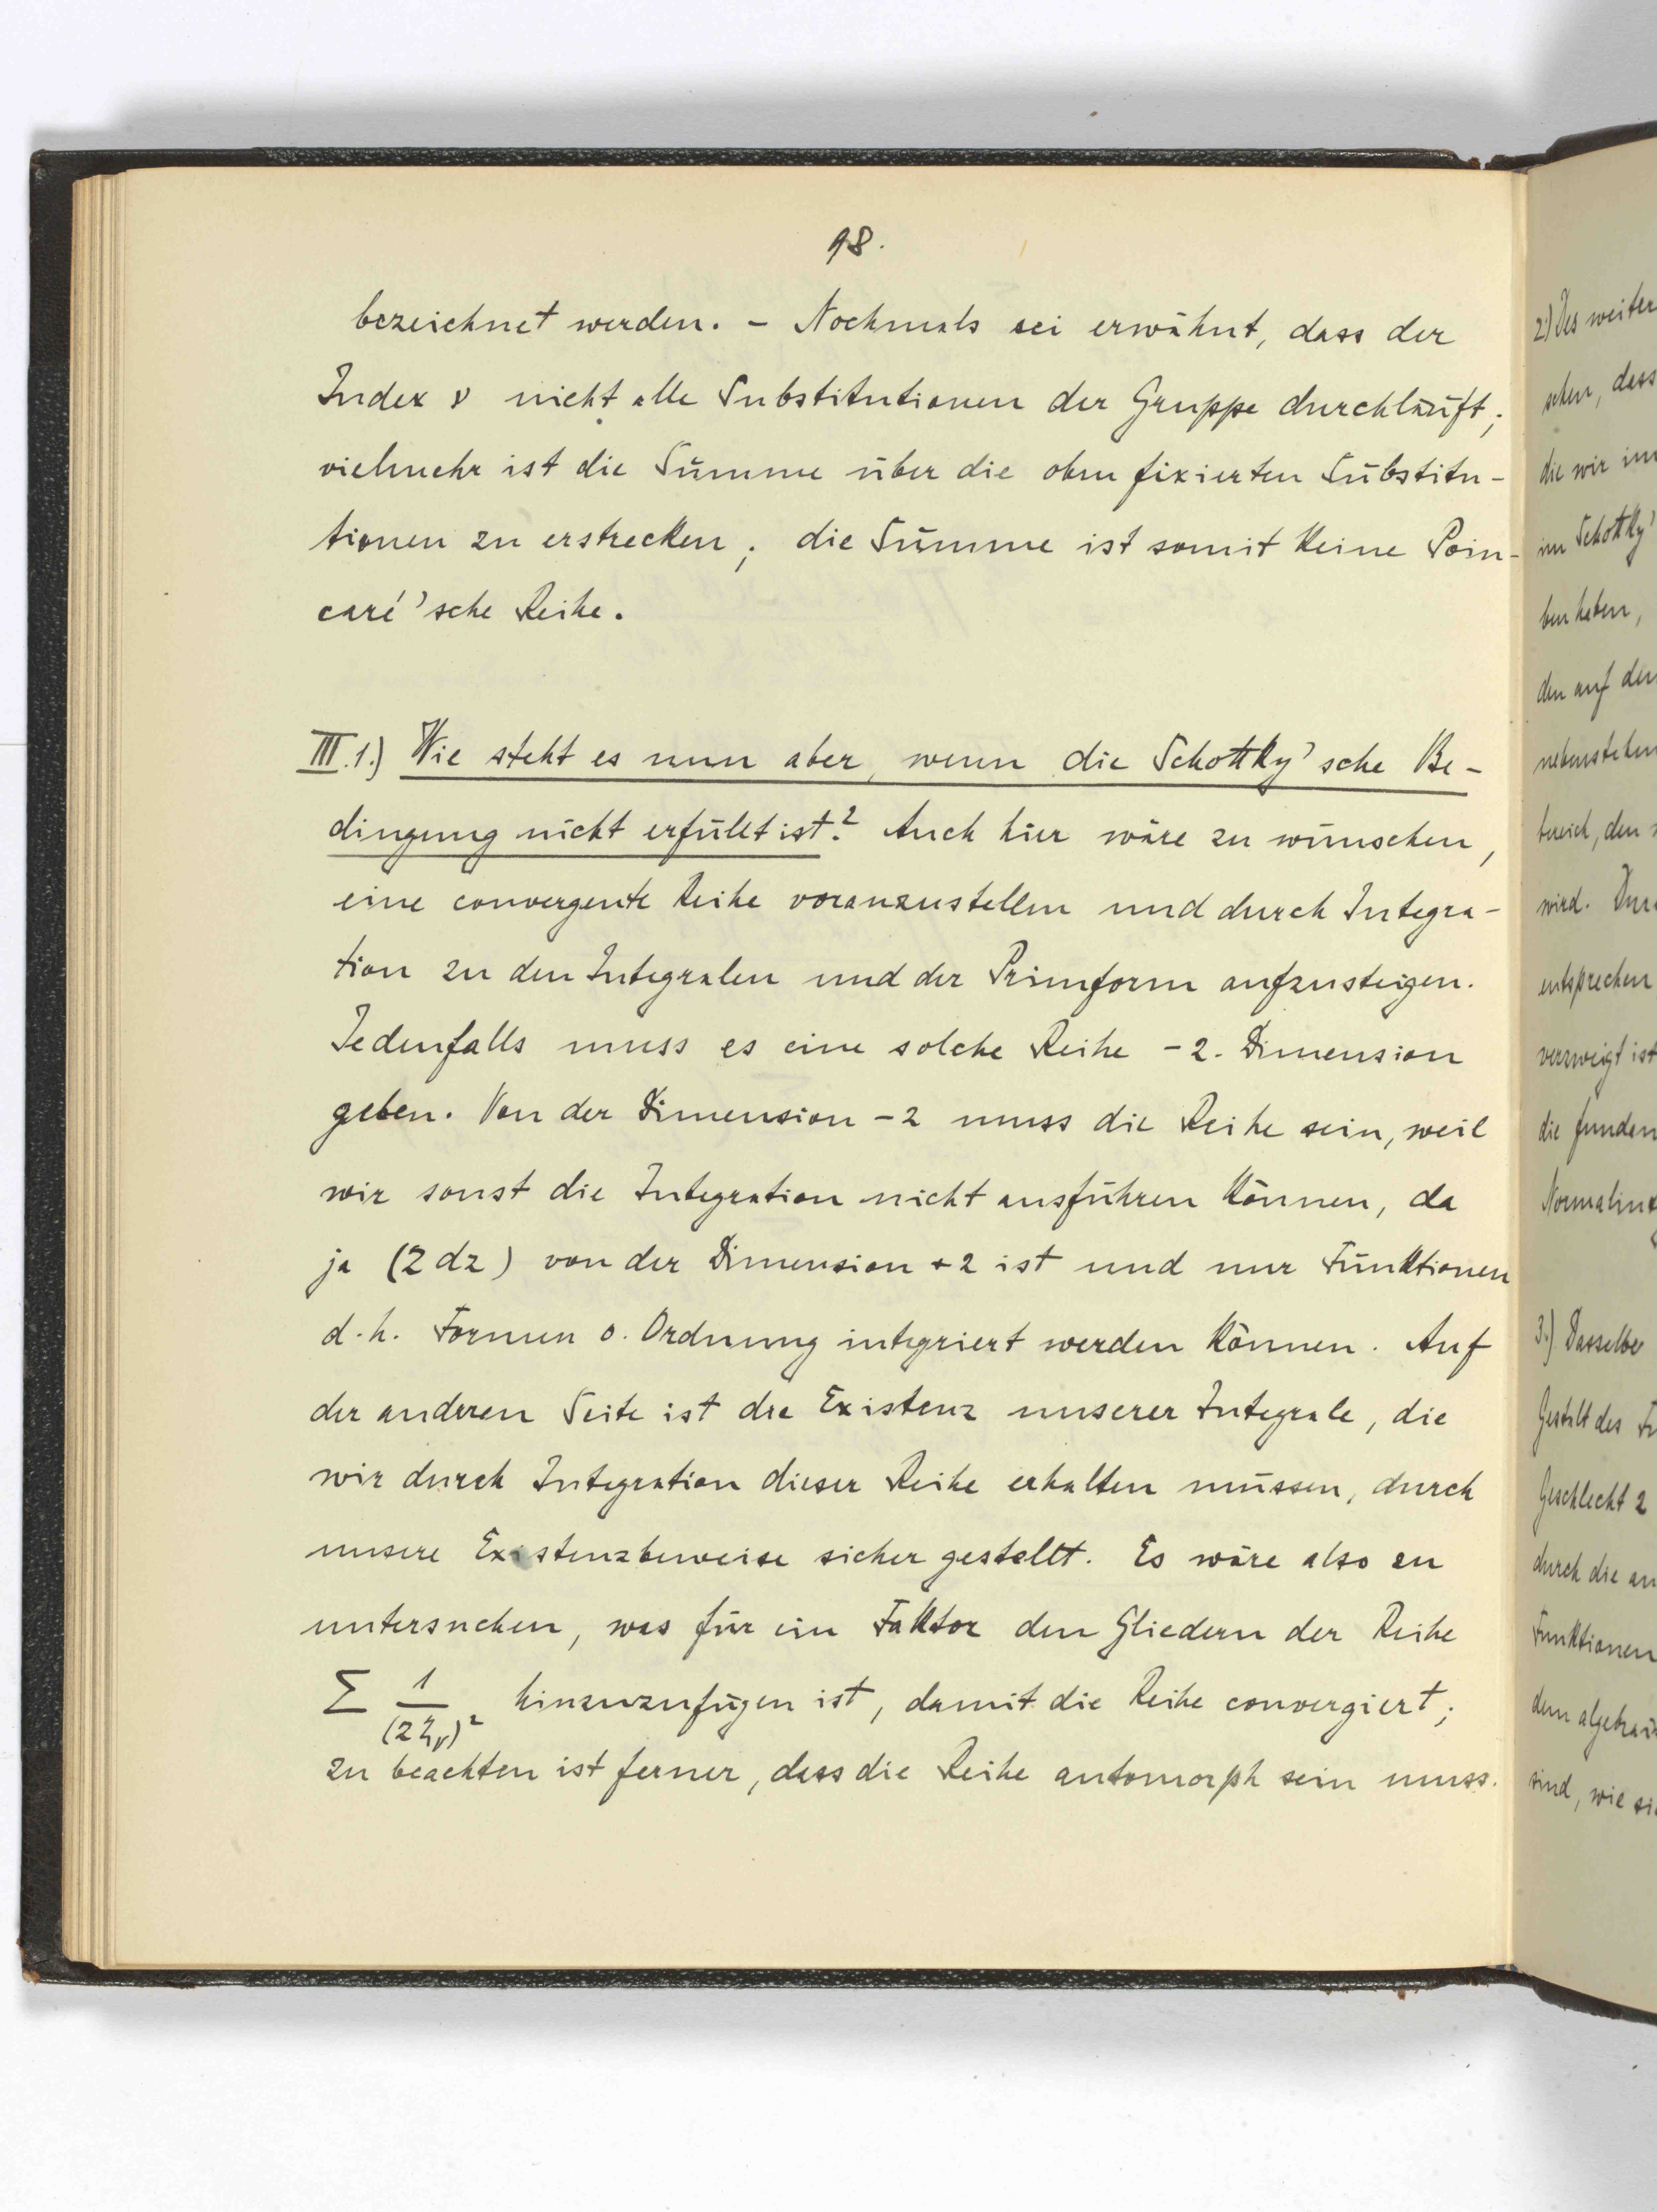 98.
bezeichnet werden. – Nochmals sei erwähnt, dass der
Index ν nicht alle Substitutionen der Gruppe durchläuft;
vielmehr ist die Summe über die oben fixierten Substitu-
tionen zu erstrecken; die Summe ist somit keine Poin-
caré'sche Reihe.
III.1.) Wie steht es nun aber, wenn die Schottky'sche Be-
dingung nicht erfüllt ist? Auch hier wäre zu wünschen,
eine convergente Reihe voranzustellen und durch Integra-
tion zu den Integralen und der Primform aufzusteigen.
Jedenfalls muss es eine solche Reihe -2. Dimension
geben. Von der Dimension -2 muss die Reihe sein, weil
wir sonst die Integration nicht ausführen können, da
ja (z dz) von der Dimension +2 ist und nur Funktionen
d.h. Formen 0. Ordnung integriert werden können. Auf
der anderen Seite ist die Existenz unserer Integrale, die
wir durch Integration dieser Reihe erhalten müssen, durch
unsere Existenzbeweise sicher gestellt. Es wäre also zu
untersuchen, was für ein Faktor den Gliedern der Reihe
Σ 1/(z ζν)² hinzuzufügen ist, damit die Reihe convergiert;
zu beachten ist ferner, dass die Reihe automorph sein muss.
2.) Des weiter
sehen, dass
die wir im
im Schottky'
ben haben,
den auf den
nebenstehen
bereich, den
wird. Dur
entsprechen
verzweigt ist
die funden
Normalin
3.) Dasselbe
Gestalt des
Geschlecht 2
durch die an
Funktionen
dem algebrai
sind, wie si